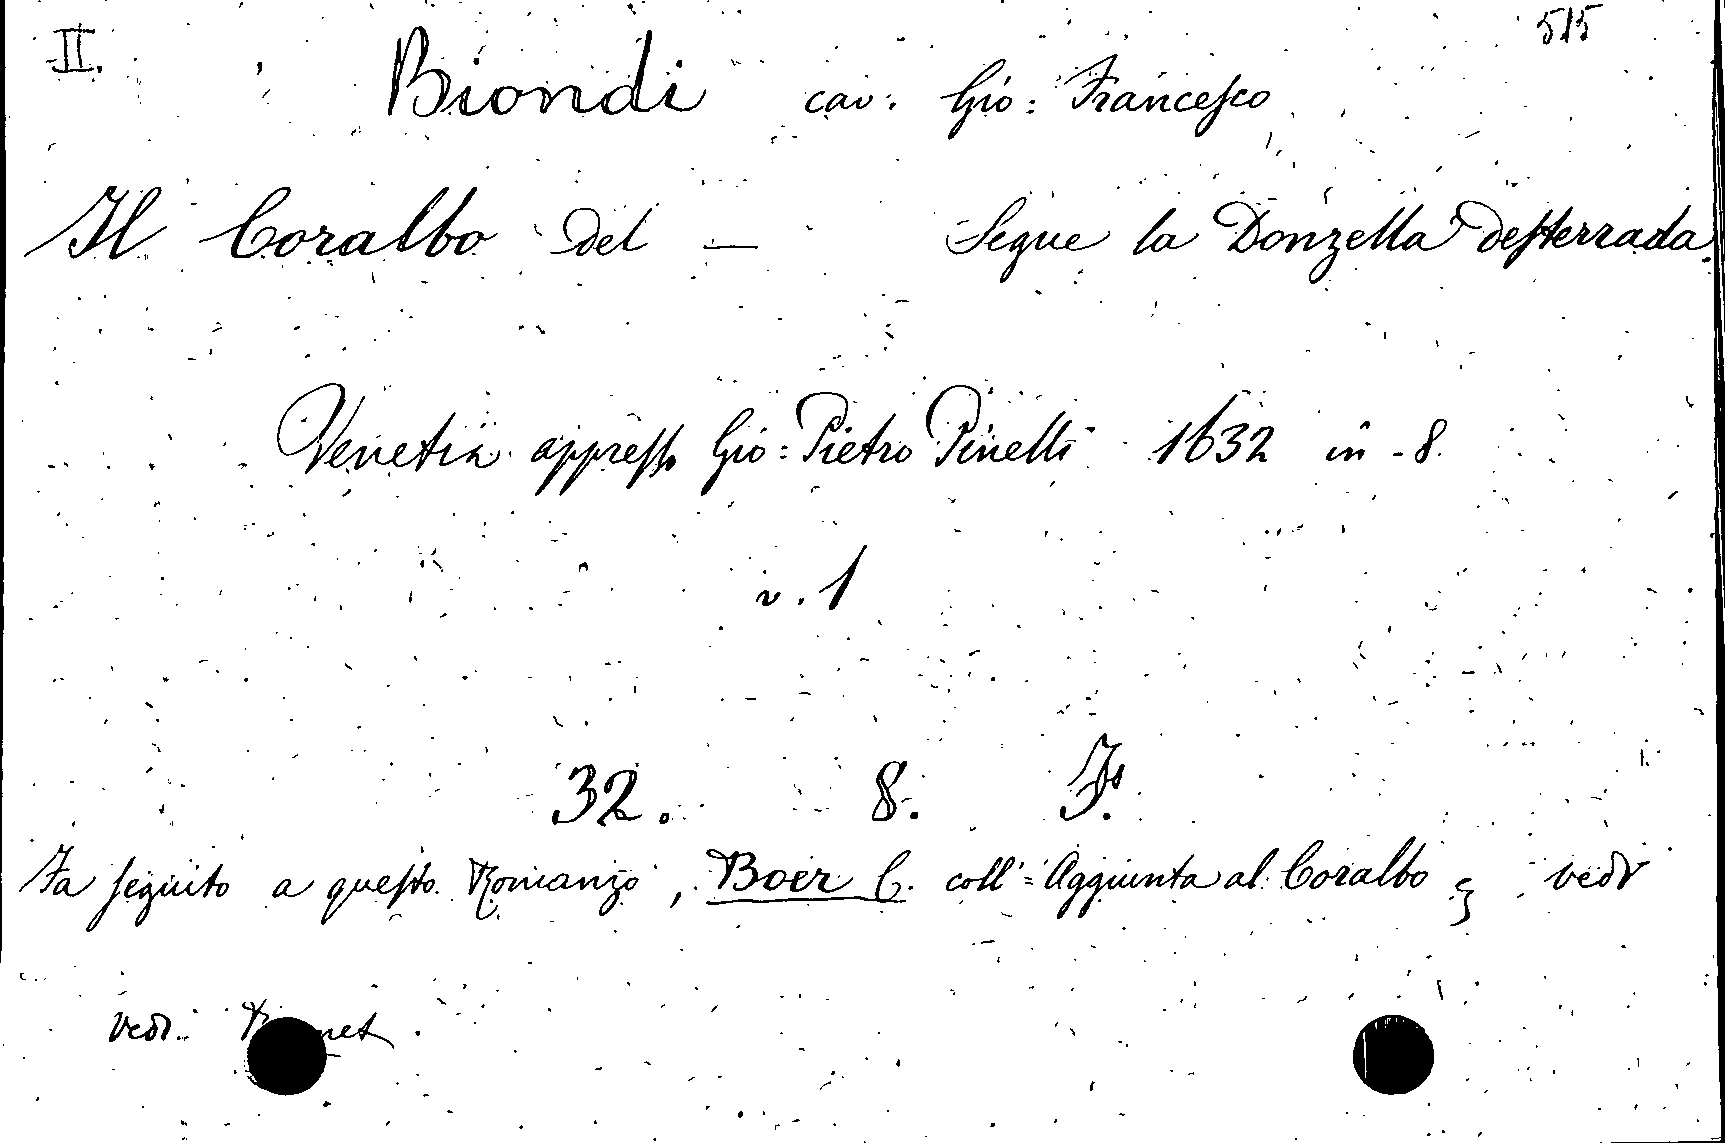 II. 515
Biondi cav: Gio: Francesco
Il Coralbo del — Segue la Donzella desterrada.
Venetia appresso Gio: Pietro Pinelli 1632 in-8.
v. 1
32. 8. F.
Fa seguito a questo Romanzo, Boer C. coll'=Aggiunta al Coralbo vedi
vedi